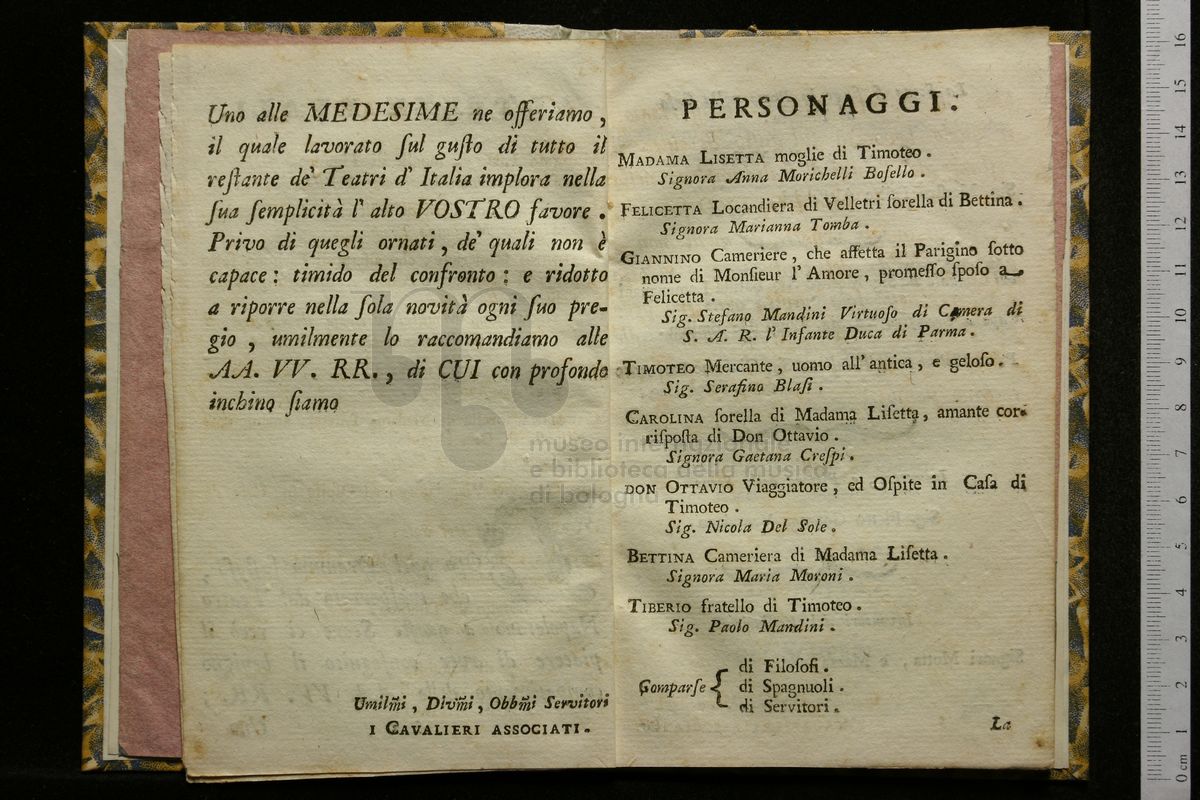 Uno alle MEDESIME ne offeriamo,
il quale lavorato ſul guſto di tutto il
reſtante de' Teatri d' Italia implora nella
ſua ſemplicità l' alto VOSTRO favore.
Privo di quegli ornati, de' quali non è
capace: timido del confronto: e ridotto
a riporre nella ſola novità ogni ſuo pre-
gio, umilmente lo raccomandiamo alle
AA. VV. RR., di CUI con profondo
inchino ſiamo
Umilm̃i, Divm̃i, Obbm̃i Servitori
I CAVALIERI ASSOCIATI.
PERSONAGGI.
MADAMA LISETTA moglie di Timoteo.
Signora Anna Morichelli Boſello.
FELICETTA Locandiera di Velletri ſorella di Bettina.
Signora Marianna Tomba.
GIANNINO Cameriere, che affetta il Parigino ſotto
nome di Monſieur l' Amore, promeſſo ſpoſo a
Felicetta.
Sig. Stefano Mandini Virtuoſo di Camera di
S. A. R. l' Infante Duca di Parma.
TIMOTEO Mercante, uomo all' antica, e geloſo.
Sig. Serafino Blaſi.
CAROLINA ſorella di Madama Liſetta, amante cor-
riſpoſta di Don Ottavio.
Signora Gaetana Creſpi.
DON OTTAVIO Viaggiatore, ed Oſpite in Caſa di
Timoteo.
Sig. Nicola Del Sole.
BETTINA Cameriera di Madama Liſetta.
Signora Maria Moroni.
TIBERIO fratello di Timoteo.
Sig. Paolo Mandini.
di Filoſofi.
Comparſe { di Spagnuoli.
di Servitori.
La
museo internazionale
e biblioteca della musica
di bologna
0 cm 1 2 3 4 5 6 7 8 9 10 11 12 13 14 15 16